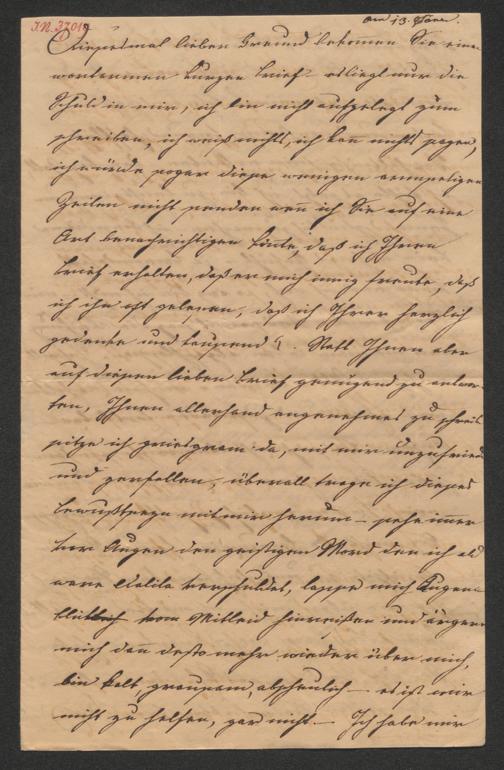 I.N. 37019
am 13. Jänn.
Diesesmal lieber Freund bekommen Sie einen
wortarmen kurzen Brief. es liegt nur die
Schuld in mir, ich bin nicht aufgelegt zum
schreiben, ich weiß nichts, ich kan nichts sagen,
ich würde sogar diese wenigen armseligen
Zeilen nicht senden wen ich Sie auf eine
Art benachrichtigen könte, daß ich Ihren
Brief erhalten, daß er mich innig freute, daß
ich ihn oft gelesen, daß ich Ihrer herzlich
gedenke und tausend. Statt Ihnen aber
auf diesen lieben Brief genügend zu antwor-
ten, Ihnen allerhand angenehmes zu schrei
sitze ich griesgram da, mit mir unzufried
und zerfallen, überall trage ich dieses
bewußtseyn mit mir herum – sehe immer
vor Augen den geistigen Mord den ich als
verschuldet, lasse mich Augen
blicklich vom Mitleid hinreißen und ärgere
mich dan desto mehr wieder über mich,
bin kalt, grausam, abscheulich – es ist mir
nicht zu helfen, gar nicht. – Ich habe mir